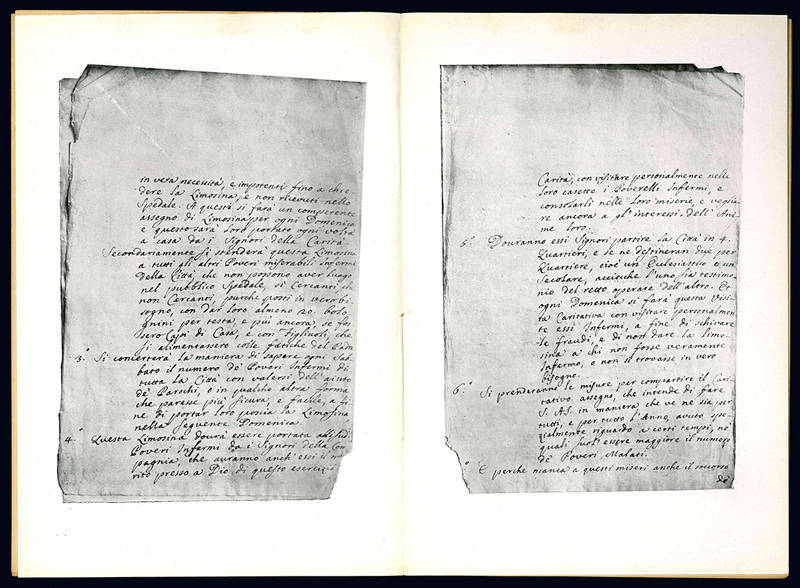 in vera necessità, e impotenti fino a chie-
dere la Limosina, e non ricevuti nello
Spedale. A questi si farà un competente
assegno di Limosina per ogni Domenica
e questo sarà loro portato ogni volta
a casa da i Signori della Carità
Secondariamente si stenderà questa Limosina
a tutti gli altri Poveri miserabili infermi
della Città, che non possono aver luogo
nel pubblico Spedale, si Cercanti che
non Cercanti, purche posti in vero bi-
sogno, con dar loro almeno 20. bolo-
gnini per testa, e più ancora, se fos-
sero Capi di Casa, e con figliuoli, che
si alimentassero colle fatiche del Padre
3.° Si concerterà la maniera di sapere ogni Sab-
bato il numero de' Poveri Infermi di
tutta la Città con valersi dell' aiuto
de' Parochi, o in qualche altra forma
che paresse più sicura, e facile, a fi-
ne di portar loro poscia la Limosina
nella seguente Domenica.
4. Questa Limosina dovrà essere portata alli sud.
Poveri Infermi da i Signori della Com-
pagnia, che auranno anch' essi il me-
rito presso a Dio di questo esercizio
Carità, con visitare personalmente nelle
loro casette i Poverelli Infermi, e
consolarli nelle loro miserie, e veglia-
re ancora a gl' interessi dell' Ani-
me loro.
5.° Douranno essi Signori partire la Città in 4.
Quartieri, e se ne destineran due per
Quartiere, cioè un Eclesiastico e un
Secolare, accioche l'uno sia testimo-
nio del retto operare dell' altro. Et
ogni Domenica si farà questa Visi-
ta Caritativa con visitare personalmen-
te essi Infermi, a fine di schivare
le fraudi, e di non dare la limo-
sina a chi non fosse veramente
Infermo, o non si trovasse in vero
bisogno.
6.° Si prenderanno le misure per compartire il Cari-
tativo assegno, che intende di fare
S. A. S. in maniera, che ve ne sia per
tutti, e per tutto l'Anno, avuto spe-
zialmente riguardo a certi tempi, ne'
quali suol' essere maggiore il numero
de' Poveri Malati.
E perche manca a questi miseri anche il soccorso
de'